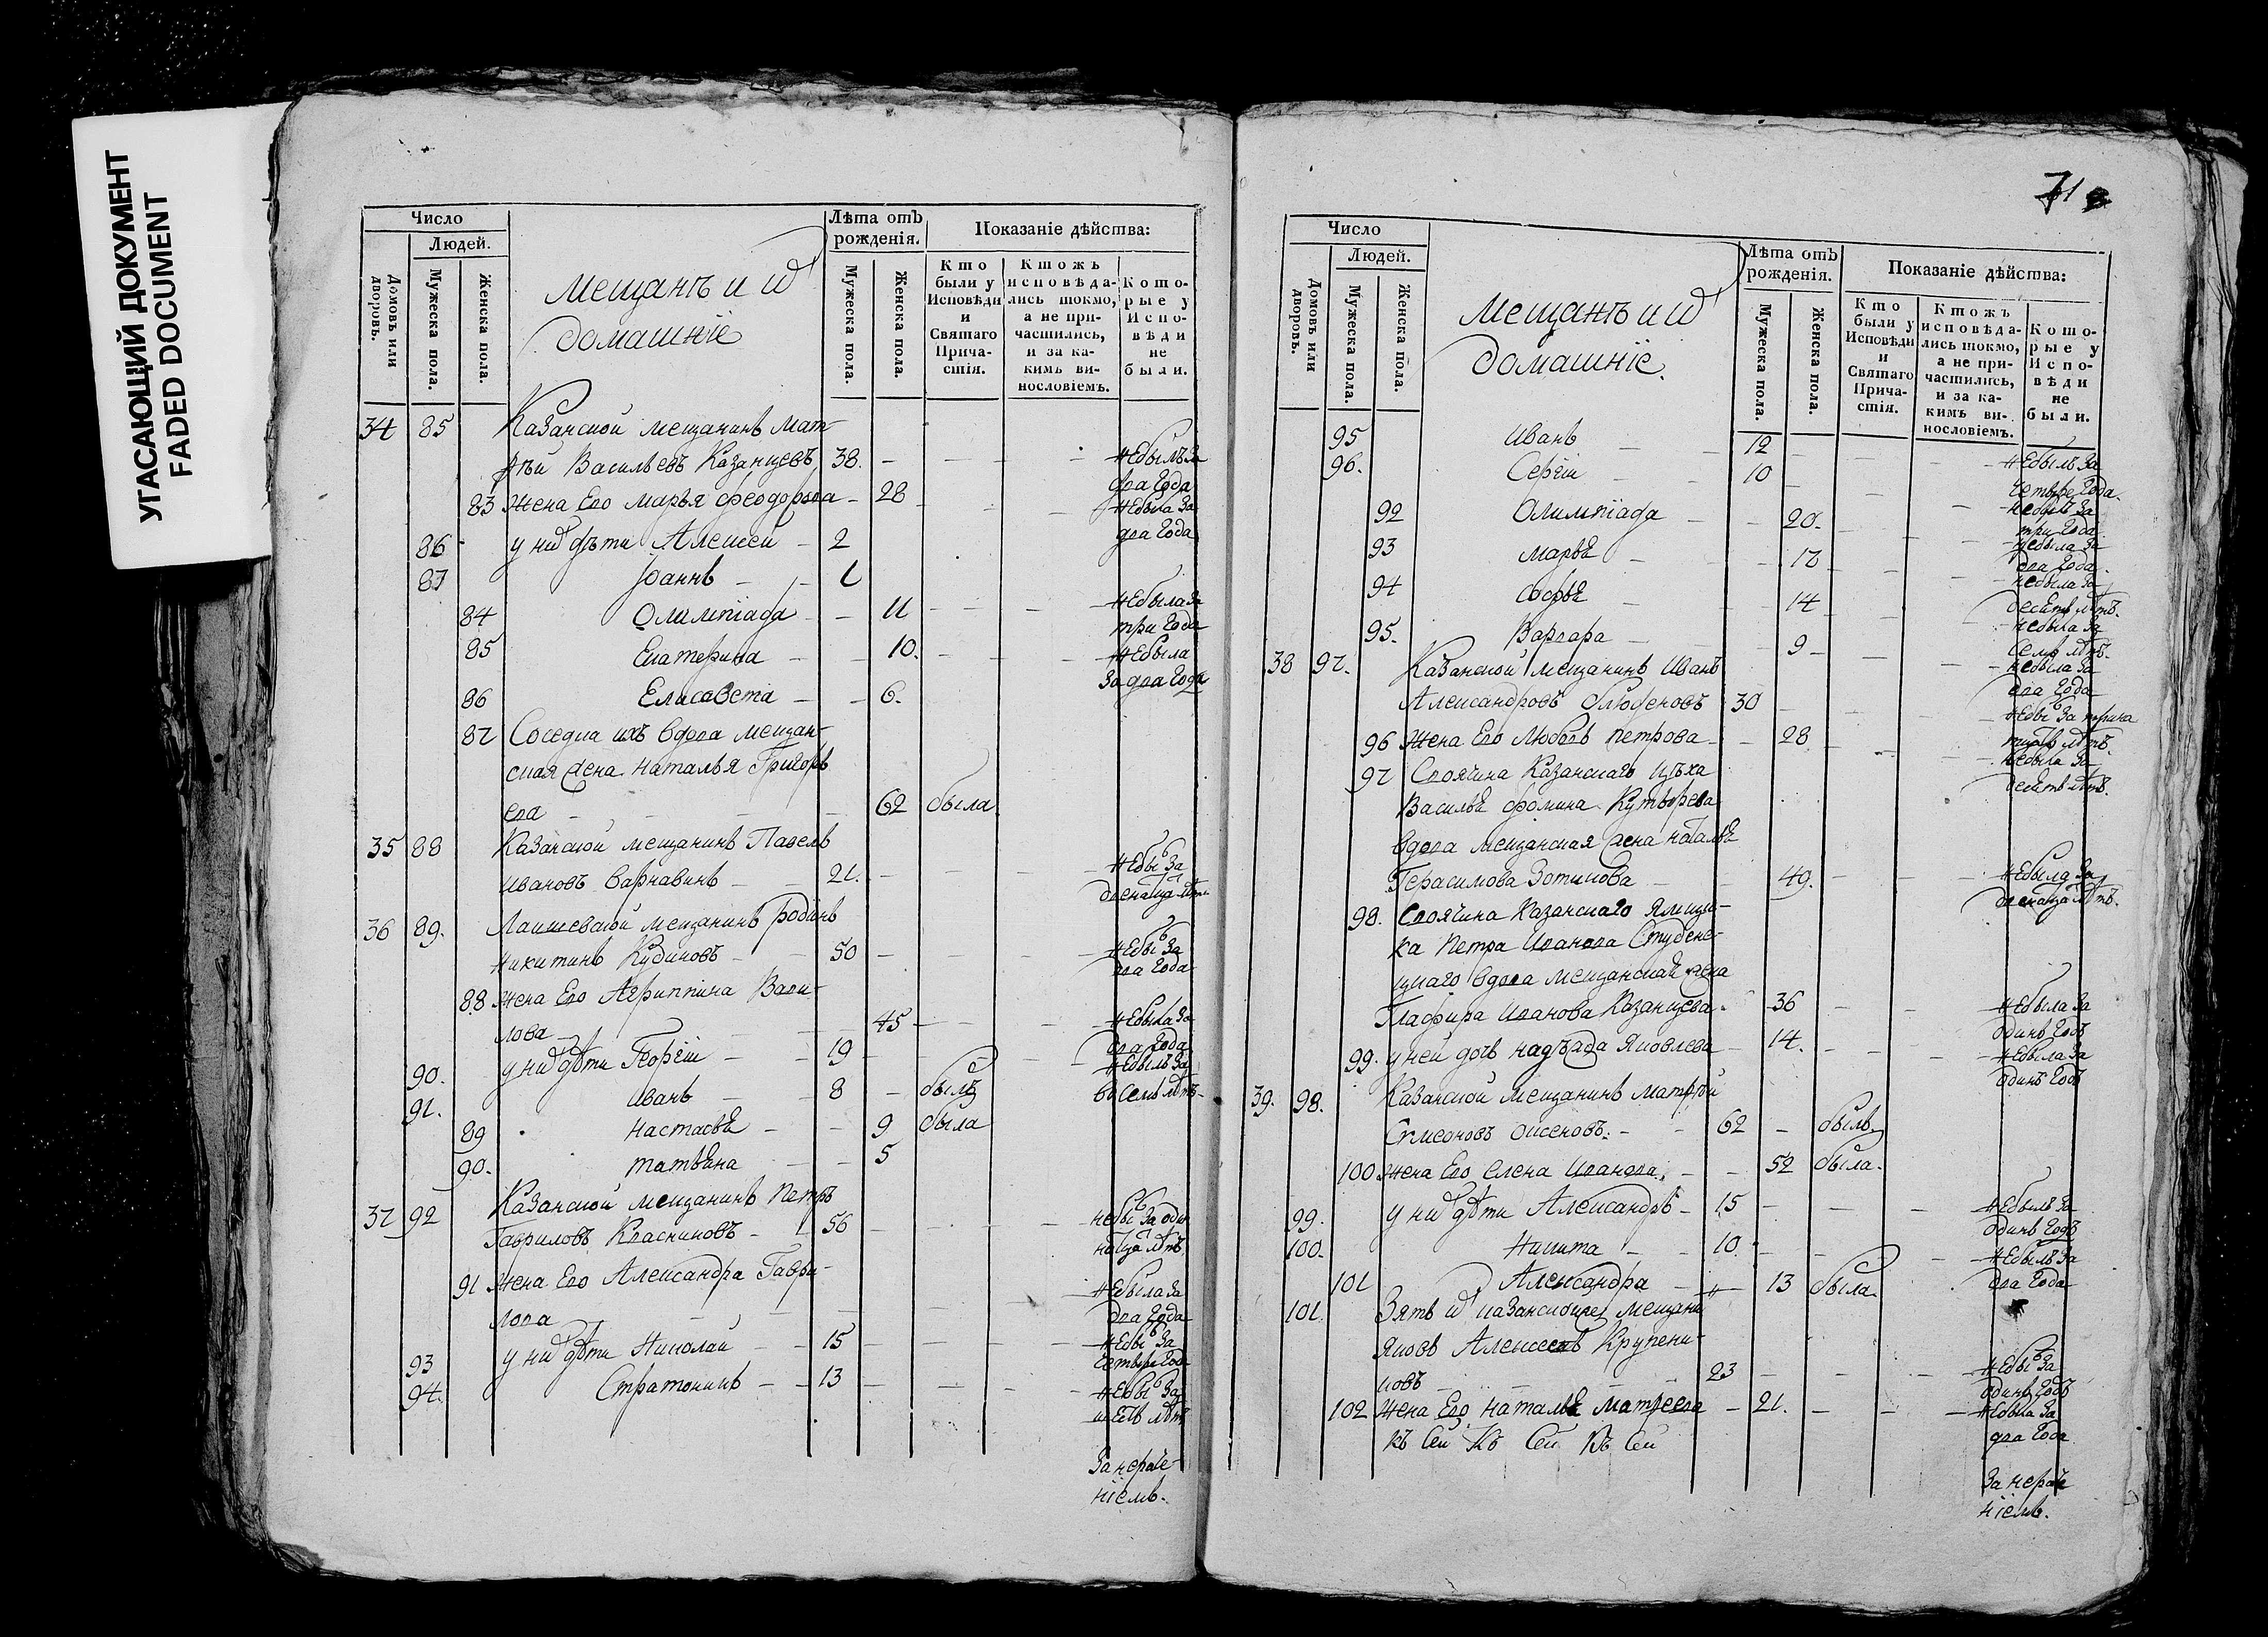 УГАСАЮЩИЙ ДОКУМЕНТ
FADED DOCUMENT
Число
Людей.
Домовъ или дворовъ.
Мужеска пола.
Женска пола.
мещанъ и их
домашніе
Лѣта отъ рожденія.
Мужеска пола.
Женска пола.
Показаніе дѣйства:
Кто были у Исповѣди и Святаго Причастія.
Ктожъ исповѣдались токмо, а не причастились, и за какимъ винословіемъ.
Которые у Исповѣди не были.
34 85 Казанской мещанинъ Мат-
фѣй Васильевъ Казанцевъ 38. небылъ за
два года
83 Жена Его Марья Феодорова 28 небыла за
два года
86 у них дѣти Алексей 2
87 Іоаннъ 1
84 Олимпіада 11 небыла за
три года
85 Екатерина 10. небыла
за два года
86 Елисавета 6.
87 Соседка ихъ вдова мещан-
ская жена Наталья Григорь
ева 62 была
35 88 Казанской мещанинъ Павелъ
Ивановъ Варнавинъ 21. небылъ за
36 89. Лаишевской мещанинъ Родіонъ
Никитинъ Кудиновъ 50 небылъ за
два года
88 жена Его Агриппина
лова 45 небыла за
два года
90. у них дѣти Георгій 19 небылъ за
восемь лѣтъ
91. Иванъ 8 былъ
89 Настасья 9 была
90. Татьяна 5
37 92 Казанской мещанинъ Петръ
Гавриловъ 56 небылъ за один
надца лѣтъ
91 Жена Его Александра Гаври-
лова небыла за
два года
93 у них дѣти Николай 15 небылъ за
четыре года
94. Стратоникъ 13 небылъ за
шесть лѣтъ
За нераде-
ніемъ.
71
Число
Людей.
Домовъ или дворовъ.
Мужеска пола.
Женска пола.
мещанъ и их
домашніе.
Лѣта отъ рожденія.
Мужеска пола.
Женска пола.
Показаніе дѣйства:
Кто были у Исповѣди и Святаго Причастія.
Ктожъ исповѣдались токмо, а не причастились, и за какимъ винословіемъ.
Которые у Исповѣди не были.
95 Иванъ 12 небылъ за
четыре года.
96. Сергій 10 небылъ за
три года
92 Олимпіада 20. небыла за
два года
93 Марья 17 небыла за
десять лѣтъ.
94 Софья 14 небыла за
семь лѣтъ.
95. Варвара 9 небыла за
два года
38 97. Казанской мещанинъ Иванъ
Александровъ 30 небылъ за
96 Жена Его Любовь Петрова 28 небыла за
десять лѣтъ.
97 Своячина Казанскаго цѣха
Василья Фомина
вдова мещанская жена Наталья
Герасимова Зотикова 49. небыла за
98. Своячина Казанскаго ямщи-
ка Петра Иванова Студене-
цкаго вдова мещанская жена
Глафира Иванова Казанцева 36 небыла за
одинъ годъ
99. у ней дочь Надѣжда Яковлева 14. небыла за
одинъ годъ
39. 98. Казанской мещанинъ Матфѣй
Симеоновъ 62 былъ
100 Жена Его Елена Иванова 52 была.
99. у них дѣти Александръ 15 небылъ за
одинъ годъ
100. Никита 10. небылъ за
два года
101 Александра 13 была.
101. Зять их мещани
Яковъ Алексеевъ Крупени-
ковъ 23 небылъ за
одинъ годъ
102 Жена Его Наталья Матфеева 21. небыла за
два года
Къ Сей Къ Сей Къ Сей
За нераде
ніемъ.